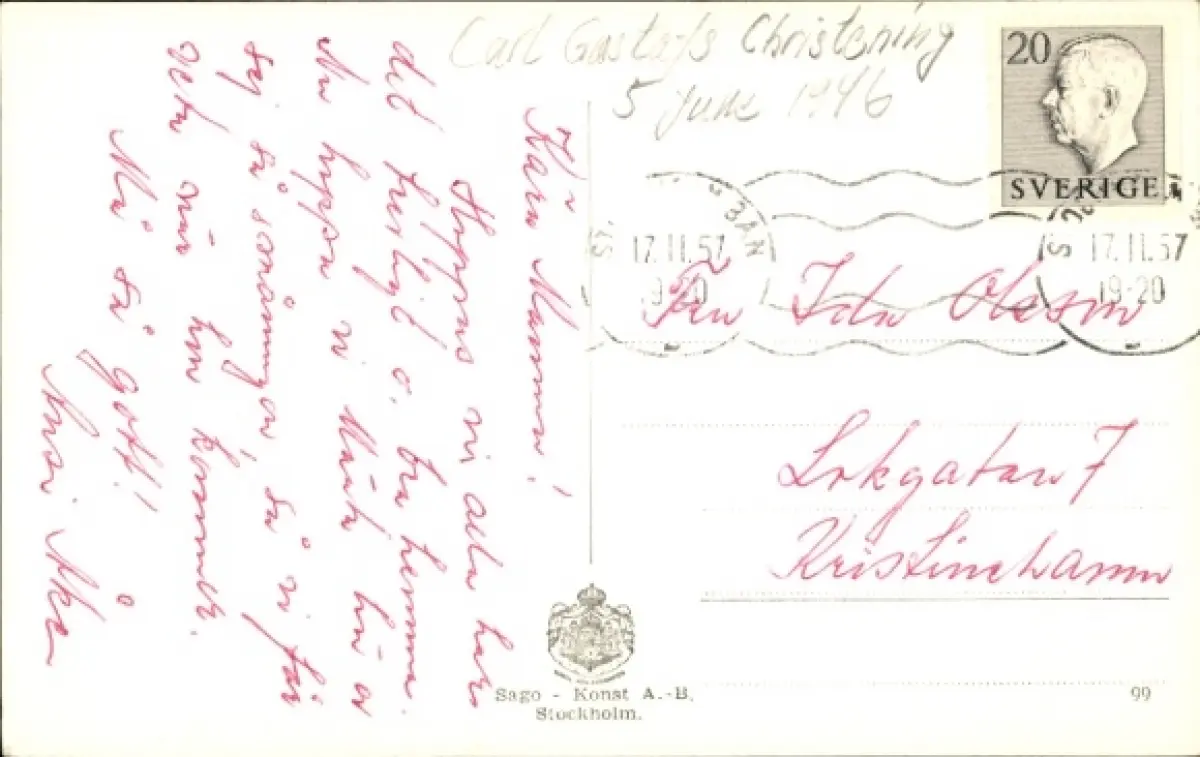 Carl Gustafs Christening
5 June 1946
20
SVERIGE
17.11.57
19-20
17.11.57
19-20
Kära Mamma!
Hoppas ni alla har
det herligt o. bra hemma.
Nu hoppa ni
dej så småningom så ni får
veta när hon kommer.
Må så gott!
Åke
Fru Ida Olsson
Lokgatan 7
Kristinehamn
Sago - Konst A.-B.
Stockholm.
99